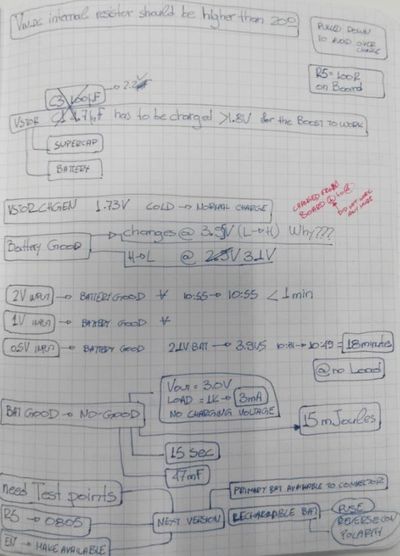 internal resistor should be higher than 20Ω
PULLED DOWN
TO AVOID OVER
CHARGE
R5 = 100R
on Board
C3 100µF → 2.2
VSTOR 4.7µF has to be charged >1.8V for the BOOST TO WORK
SUPERCAP
BATTERY
VSTOR CHGEN 1.73V COLD → NORMAL CHARGE
CHANGED FROM
BOARD
DO NOT WORK
Battery Good → changes @ 3.5V (L→H) Why???
H→L @ 2.5V 3.1V
2V INPUT → BATTERY GOOD 10:55 → 10:55 < 1min
1V INPUT → BATTERY GOOD
0.5V INPUT → BATTERY GOOD 2.1V BAT → 3.9V 10:31 → 10:49 = 18minutes
@no Load
VOUT = 3.0V
LOAD = 1K → 3mA
NO CHARGING VOLTAGE
BAT GOOD → NO-GOOD
15 mJoules
15 sec
47mF
need Test points
PRIMARY BAT AVAILABLE TO CONNECTOR
R5 → 0805
NEXT VERSION
RECHARGEABLE BAT
FUSE
REVERSE CON
POLARITY
EN → MAKE AVAILABLE